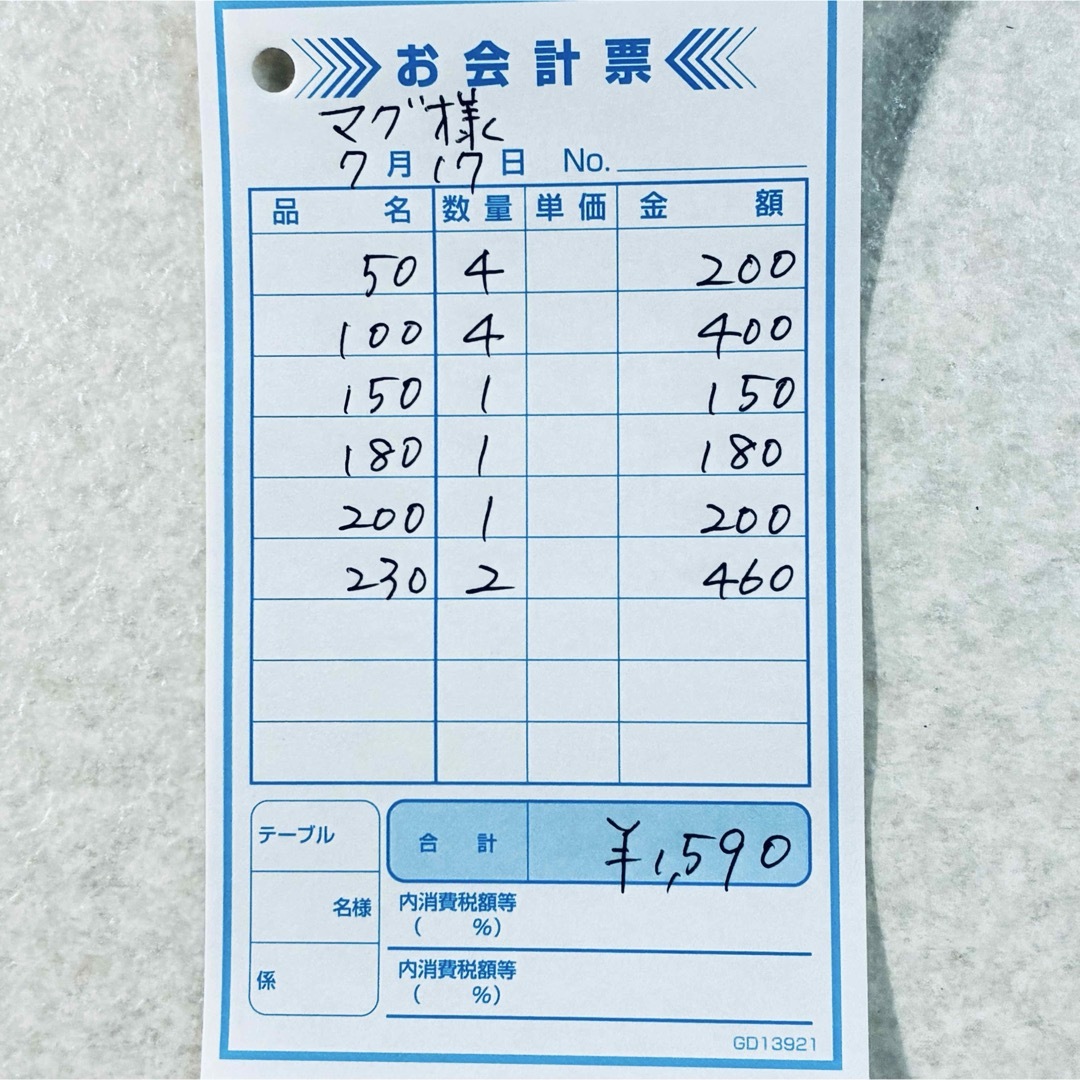 お会計票
マグ様
7月17日 No.
品名 数量 単価 金額
50 4 200
100 4 400
150 1 150
180 1 180
200 1 200
230 2 460
テーブル
合計 ¥1,590
名様
内消費税額等
( %)
係
内消費税額等
( %)
GD13921